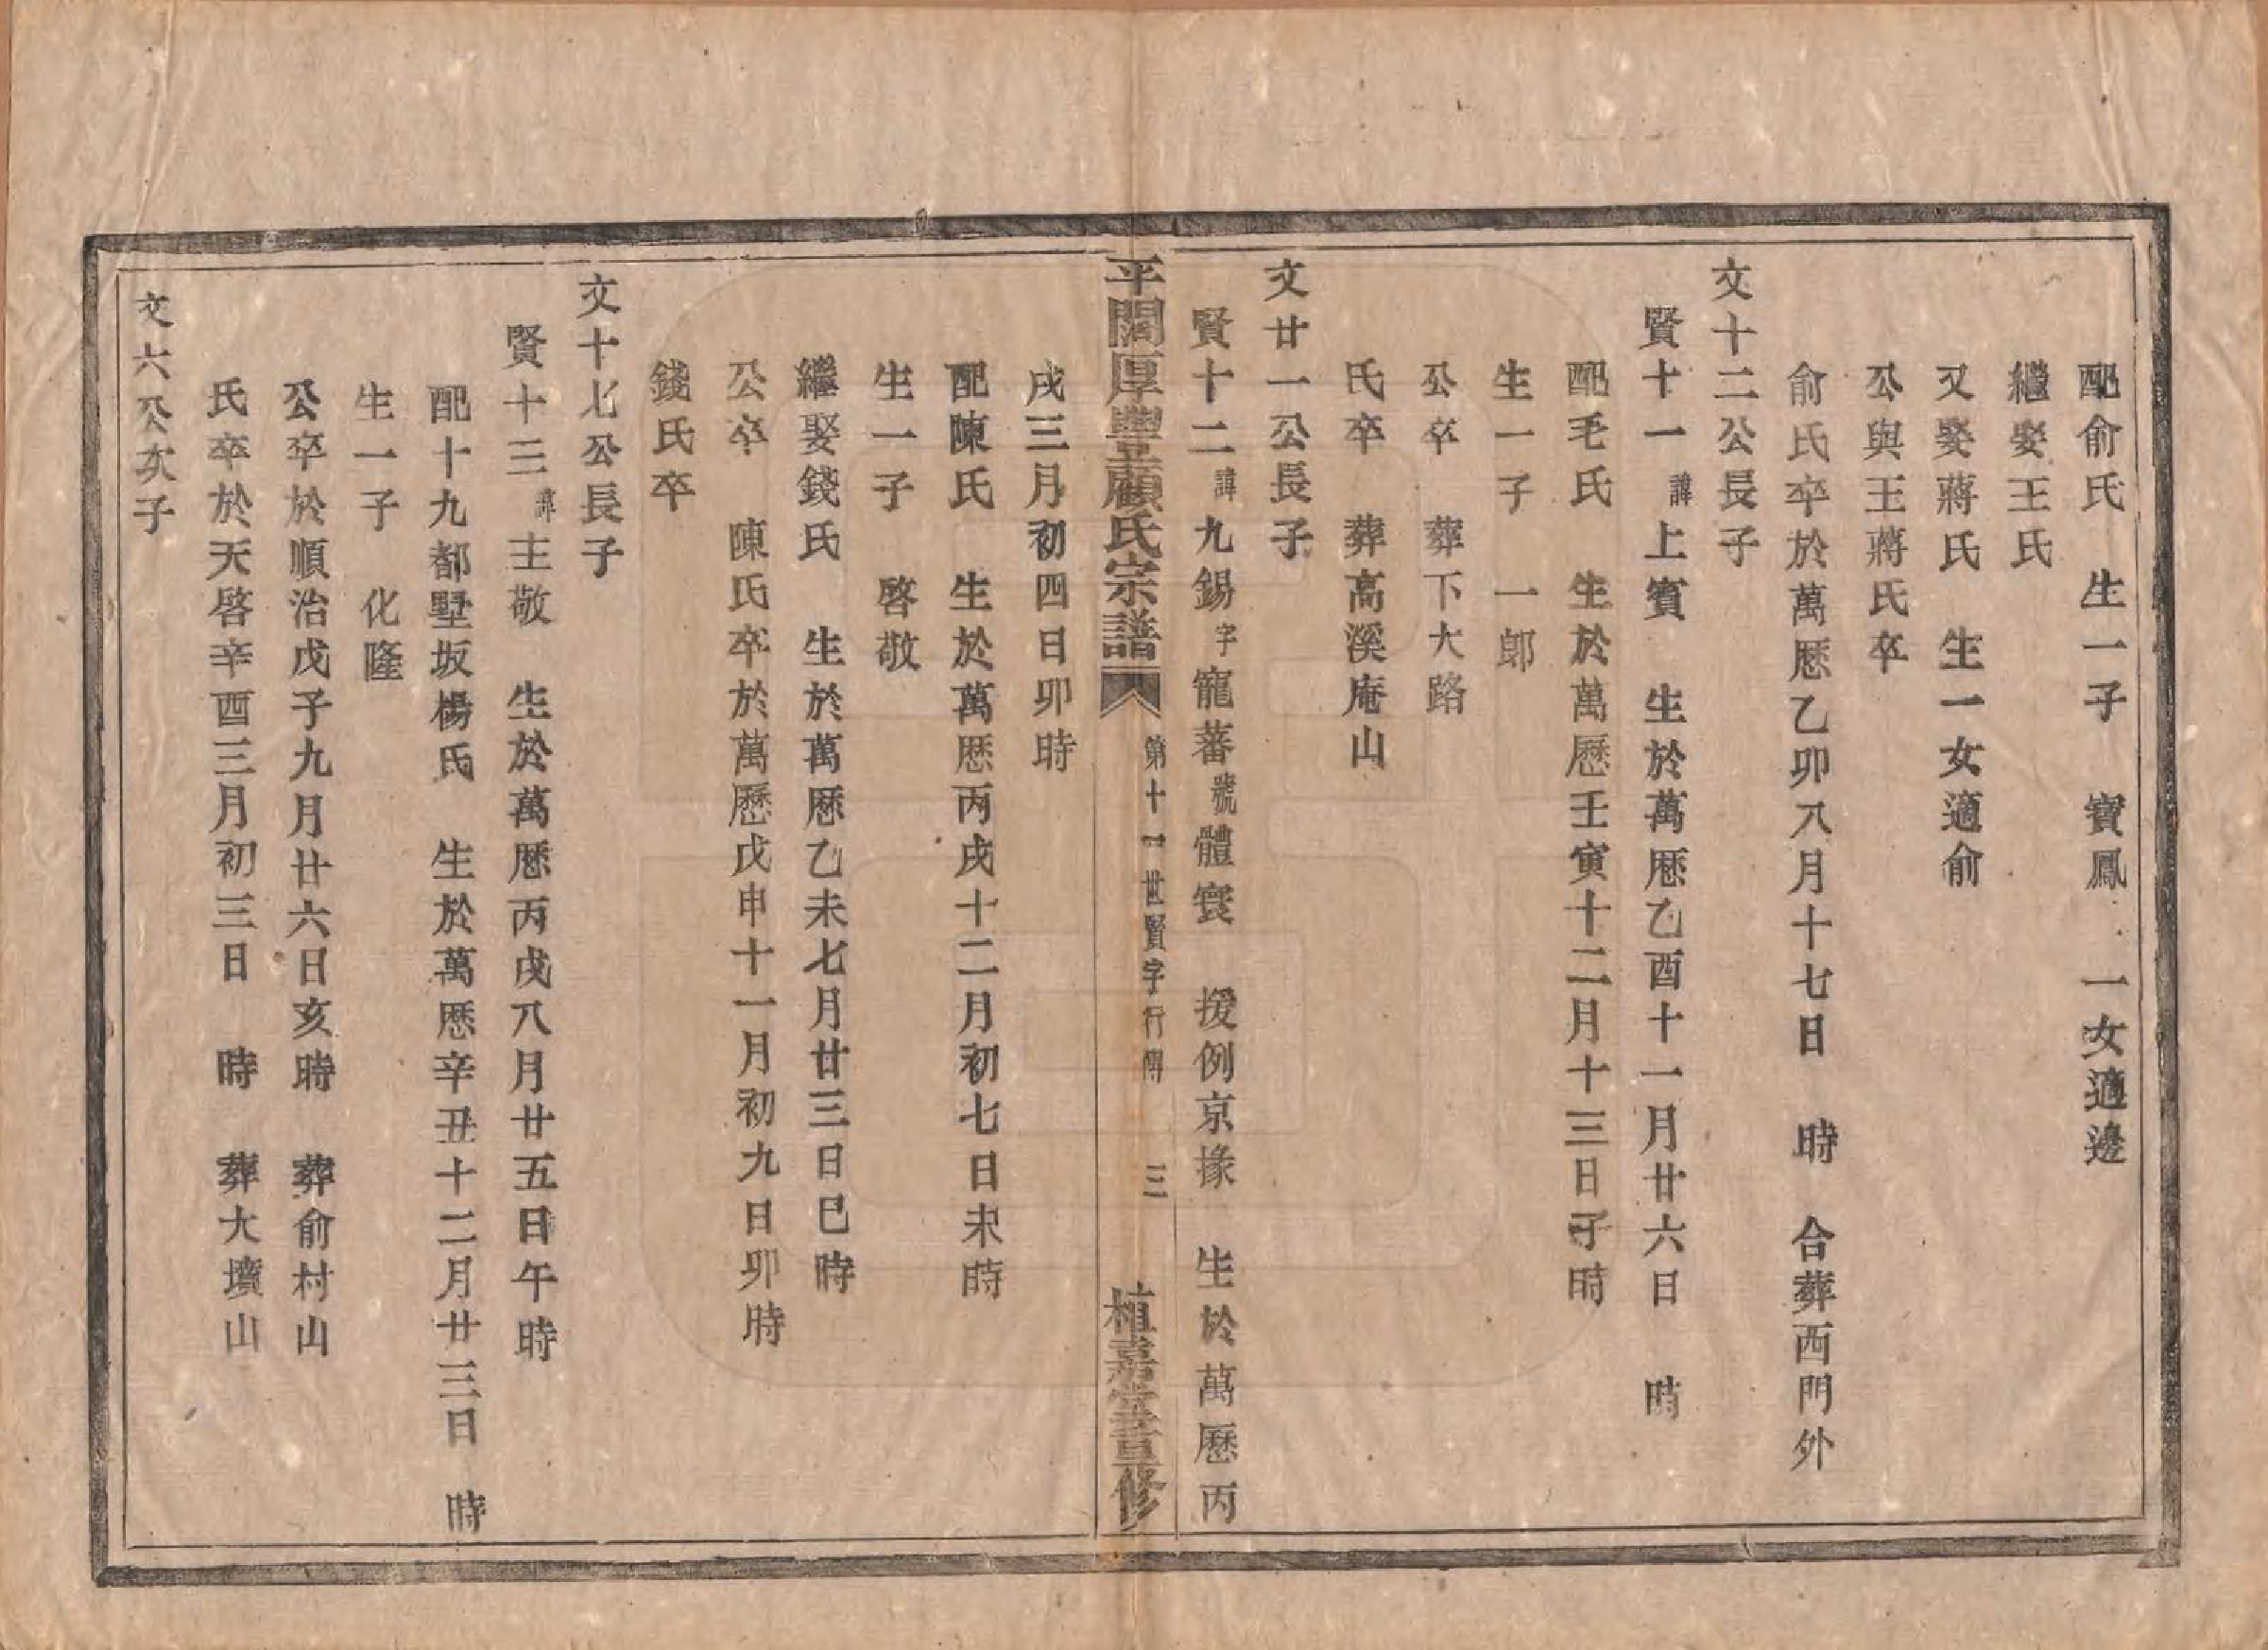 配俞氏　生一子　寶鳳　一女適邊
繼娶王氏
又娶蔣氏　生一女適俞
公與王蔣氏卒
俞氏卒於萬厯乙卯八月十七日　時　合葬西門外
文十二公長子
賢十一諱上賓　生於萬厯乙酉十一月廿六日　時
配毛氏　生於萬厯壬寅十二月十三日子時
生一子　一郎
公卒　葬下大路
氏卒　葬高溪庵山
文廿一公長子
賢十二諱九錫字寵蕃號體寰　援例京掾　生於萬厯丙
平闊厚豐顧氏宗譜　第十一世賢字行傳　三　植嘉堂重修
戌三月初四日卯時
配陳氏　生於萬厯丙戌十二月初七日未時
生一子　啓敬
繼娶錢氏　生於萬厯乙未七月廿三日巳時
公卒　陳氏卒於萬厯戊申十一月初九日卯時
錢氏卒
文十七公長子
賢十三諱主敬　生於萬厯丙戌八月廿五日午時
配十九都墅坂楊氏　生於萬厯辛丑十二月廿三日　時
生一子　化隆
公卒於順治戊子九月廿六日亥時　葬俞村山
氏卒於天啓辛酉三月初三日　時　葬大墳山
文六公次子